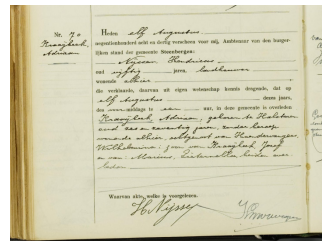 Nr. 70
Kraaijkerk,
Adriaan
Heden elf Augustus
negentienhonderd acht en dertig verscheen voor mij, Ambtenaar van den burger-
lijken stand der gemeente Steenbergen:
Nijssen Hendricus
oud vijftig jaren, landbouwer
wonende alhier
die verklaarde, daarvan uit eigen wetenschap kennis dragende, dat op
elf Augustus dezes jaars,
des middags te een uur, in deze gemeente is overleden
Kraaijkerk, Adriaan, geboren te Halsteren
oud zes en zeventig jaren, zonder beroep
wonende alhier echtgenoot van
Wilhelmina, zoon van Kraaijkerk Jozef
en van beiden over-
leden
Waarvan akte, welke is voorgelezen.
H. Nijssen